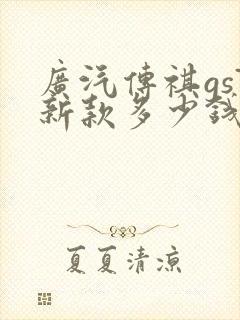 廣汽傳祺gs
新款多少錢
夏夏清涼